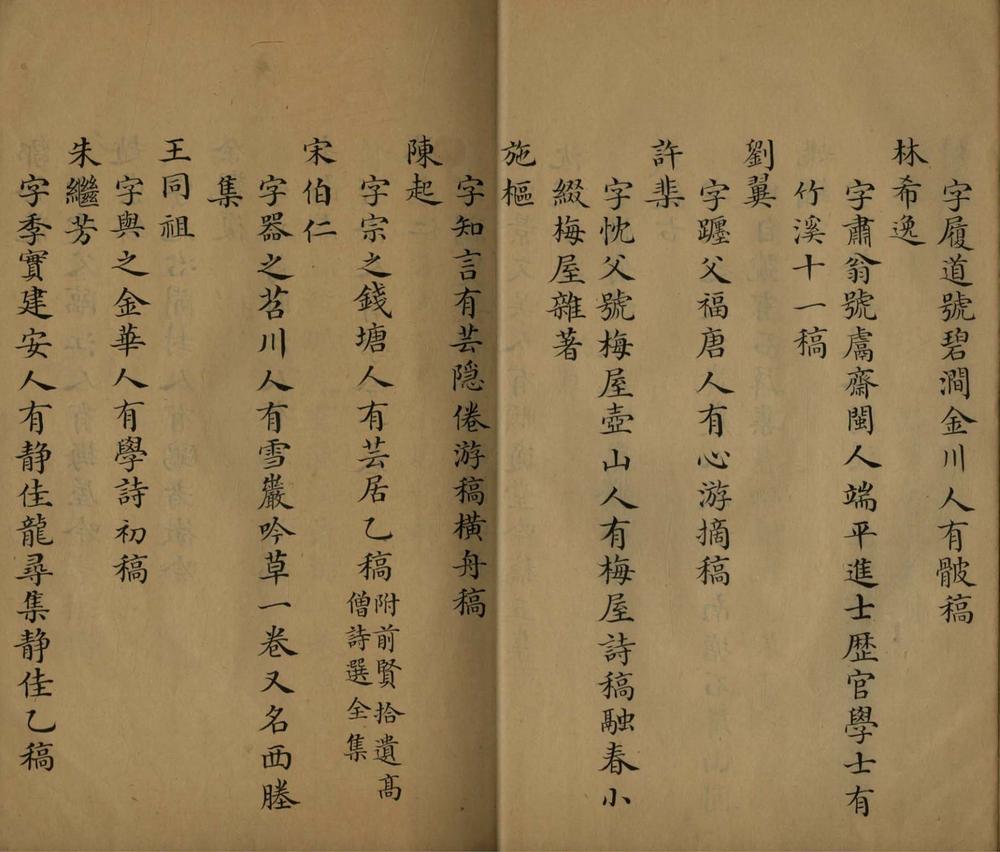 字履道號碧澗金川人有骳稿
林希逸
字肅翁號鬳齋閩人端平進士歷官學士有
竹溪十一稿
劉翼
字躔父福唐人有心游摘稿
許棐
字忱父號梅屋壺山人有梅屋詩稿融春小
綴梅屋雜著
施樞
字知言有芸隐倦游稿橫舟稿
陳起
字宗之錢塘人有芸居乙稿附前賢拾遺髙
僧詩選全集
宋伯仁
字器之苕川人有雪巖吟草一卷又名西塍
集
王同祖
字與之金華人有學詩初稿
朱繼芳
字季實建安人有静佳龍尋集静佳乙稿